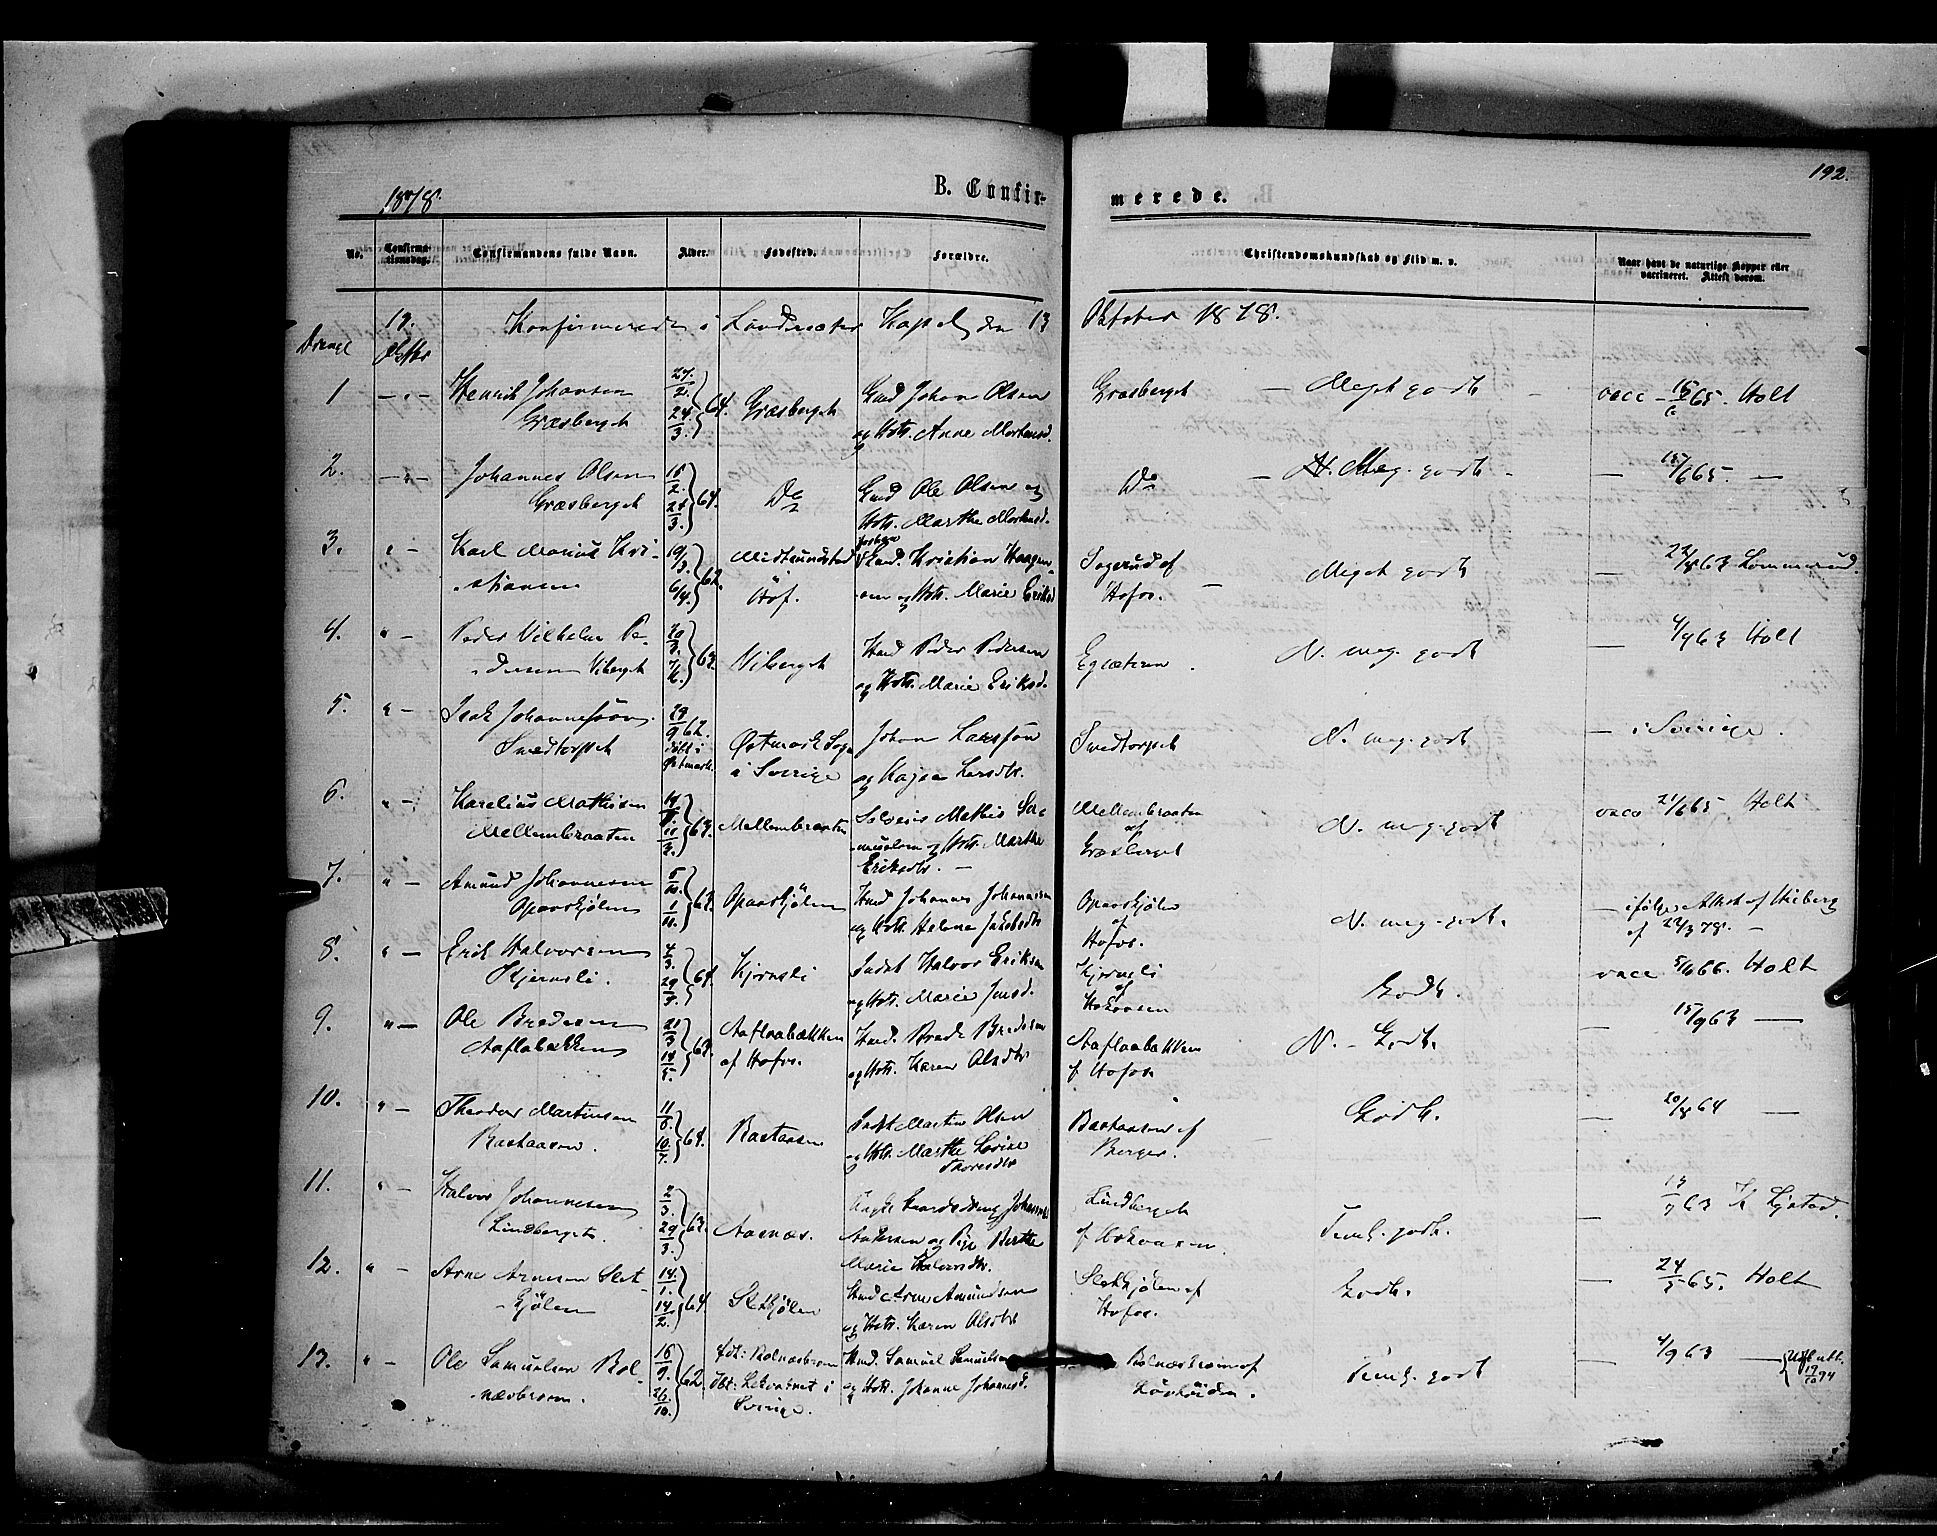 192.
1878.
B. Confir-
merede.
No.
Confirma-
tionsdag.
Confirmandens fulde Navn.
Alder.
Fødested.
Forældre.
Christendomskundskab og Flid m. v.
Naar havt de naturlige Kopper eller
vaccineret. Attest derom.
Drenge
13.
Oktbr
Konfirmerede i Lundersæter Kapel den 13 Oktober 1878.
1 — „ — Henrik Johansen Græsberget 27/2 24/3 64. Græsberget Gmd Johan Olsen og Hstr. Anne Mortensd. Græsberget — Meget godt — vacc — 15/6 65. Holt
2. — „ — Johannes Olsen Græsberget 15/2. 24/3. 64. Do Gmd Ole Olsen og Hstr. Marthe Mortensd. Do — N. Meg. godt — — 15/6 65. —
3. „ — Karl Marius Kri-
stiansen 19/3. 6/4. 62. Midtsundstad Hof. Kristian Haagen-
sen og Hstr. Marie Eriksd Sagerud af Hofos. — Meget godt — 22/8 63 Lommerud.
4. „ — Peder Vilhelm Pe-
dersen Viberget 20/3. 63. Viberget Hmd Peder Pedersen og Hstr. Marie Eriksd. Egsæteren. N. meg. godt — 4/9 63 Holt
5. „ — Isak Johannesson Svedtorpet 29/9 62. døbt i Østmark. Østmark Sogn i Sverige Johan Larsson og Kajsa Larsdtr. Svedtorpet N. meg. godt — i Sverige.
6. „ — Karelius Mathisen Mellembraaten 63. Mellembraaten Selveier Mathis Sa-
muelsen og Hstr. Marthe Eriksdtr. — Mellembraaten af Græsberget N. meg. godt vacc 21/6 65 Holt
7. „ — Amund Johannesen Opaaskjølen 63. Opaaskjølen Hmd Johannes Johannesen og Hstr. Helene Jakobsdtr Opaaskjølen af Hofos. N. meg. godt. — ifølge Attest af Kiberg af 22/3 78. —
8. „ — Erik Halvorsen Kjernsli. 4/3. 29/3. 64. Kjernsli Indst Halvor Eriksen og Hstr. Marie Jensd. Kjernsli af Hokaasen Godt. vacc 5/6 66. Holt
9. „ — Ole Bredesen Aaflobækken 21/3 14/5. 63. Aaflaabækken af Hofos. Hmd. Brede Bredesen og Hstr. Karen Olsdtr Aaflaabækken af Hofos. N. – Godt. — 15/9 63 —
10. „ — Theodor Martinsen Rastaasen. 11/6. 10/7. 64. Rastaasen Indst Martin Olsen og Hstr. Marthe Lovise Thoresdtr Rastaasen af Berger. Godt. — 20/8 64 —
11. „ — Halvor Johannesen Lindberget. 2/3. 29/3. 63. Aasnæs. Johannes Andersen og Pige Berthe Marie Halvorsdtr. Lindberget af Hokaasen. Temk. godt. — 13/7 63 K Ljøstad.
12. „ — Arne Arnesen Slet-
kjølen 14/1. 14/2. 64. Sletkjølen Hmd Arne Amundsen og Hstr. Karen Olsdtr Sletkjølen af Hofos. Godt. — 24/5 65. Holt
13. „ — Ole Samuelsen Bol-
næsbroen. 16/9. 26/10. 62. fdt: Bolnæsbroen dbt: Lekvatnet i Sverige. Hmd. Samuel Samuelsen og Hstr. Johanne Johannesd. Bolnæsbroen af Løvhaugen. Temk. godt — 4/9 63 — Udst att. 19/10 94